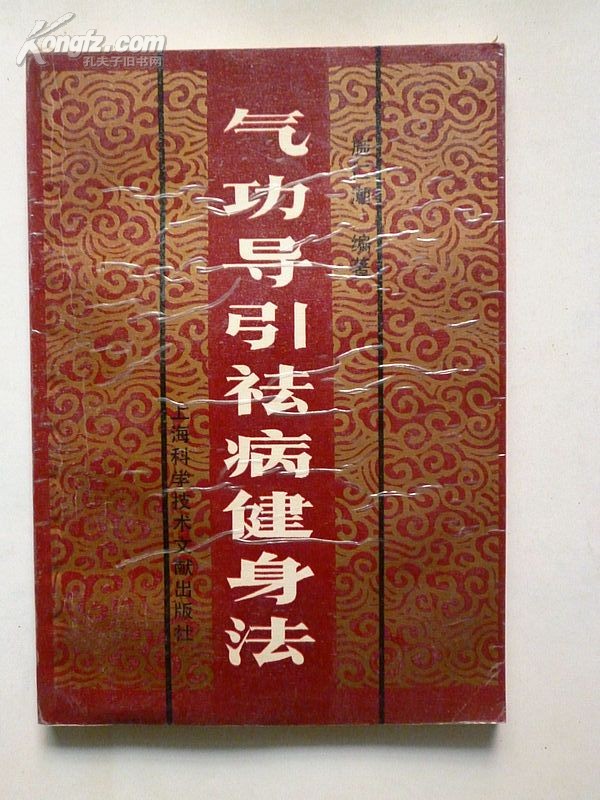 Kongfz.com
孔夫子旧书网
编著
气功导引祛病健身法
上海科学技术文献出版社